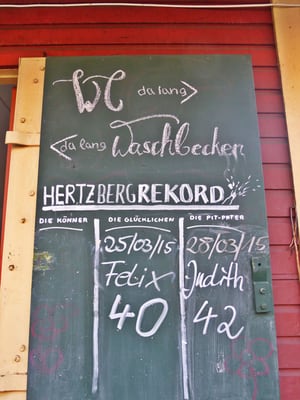 WC da lang >
< da lang Waschbecken
HERTZBERGREKORD
DIE KÖNNER DIE GLÜCKLICHEN DIE PIT-PATER
25/03/15 28/03/15
Felix Judith
40 42